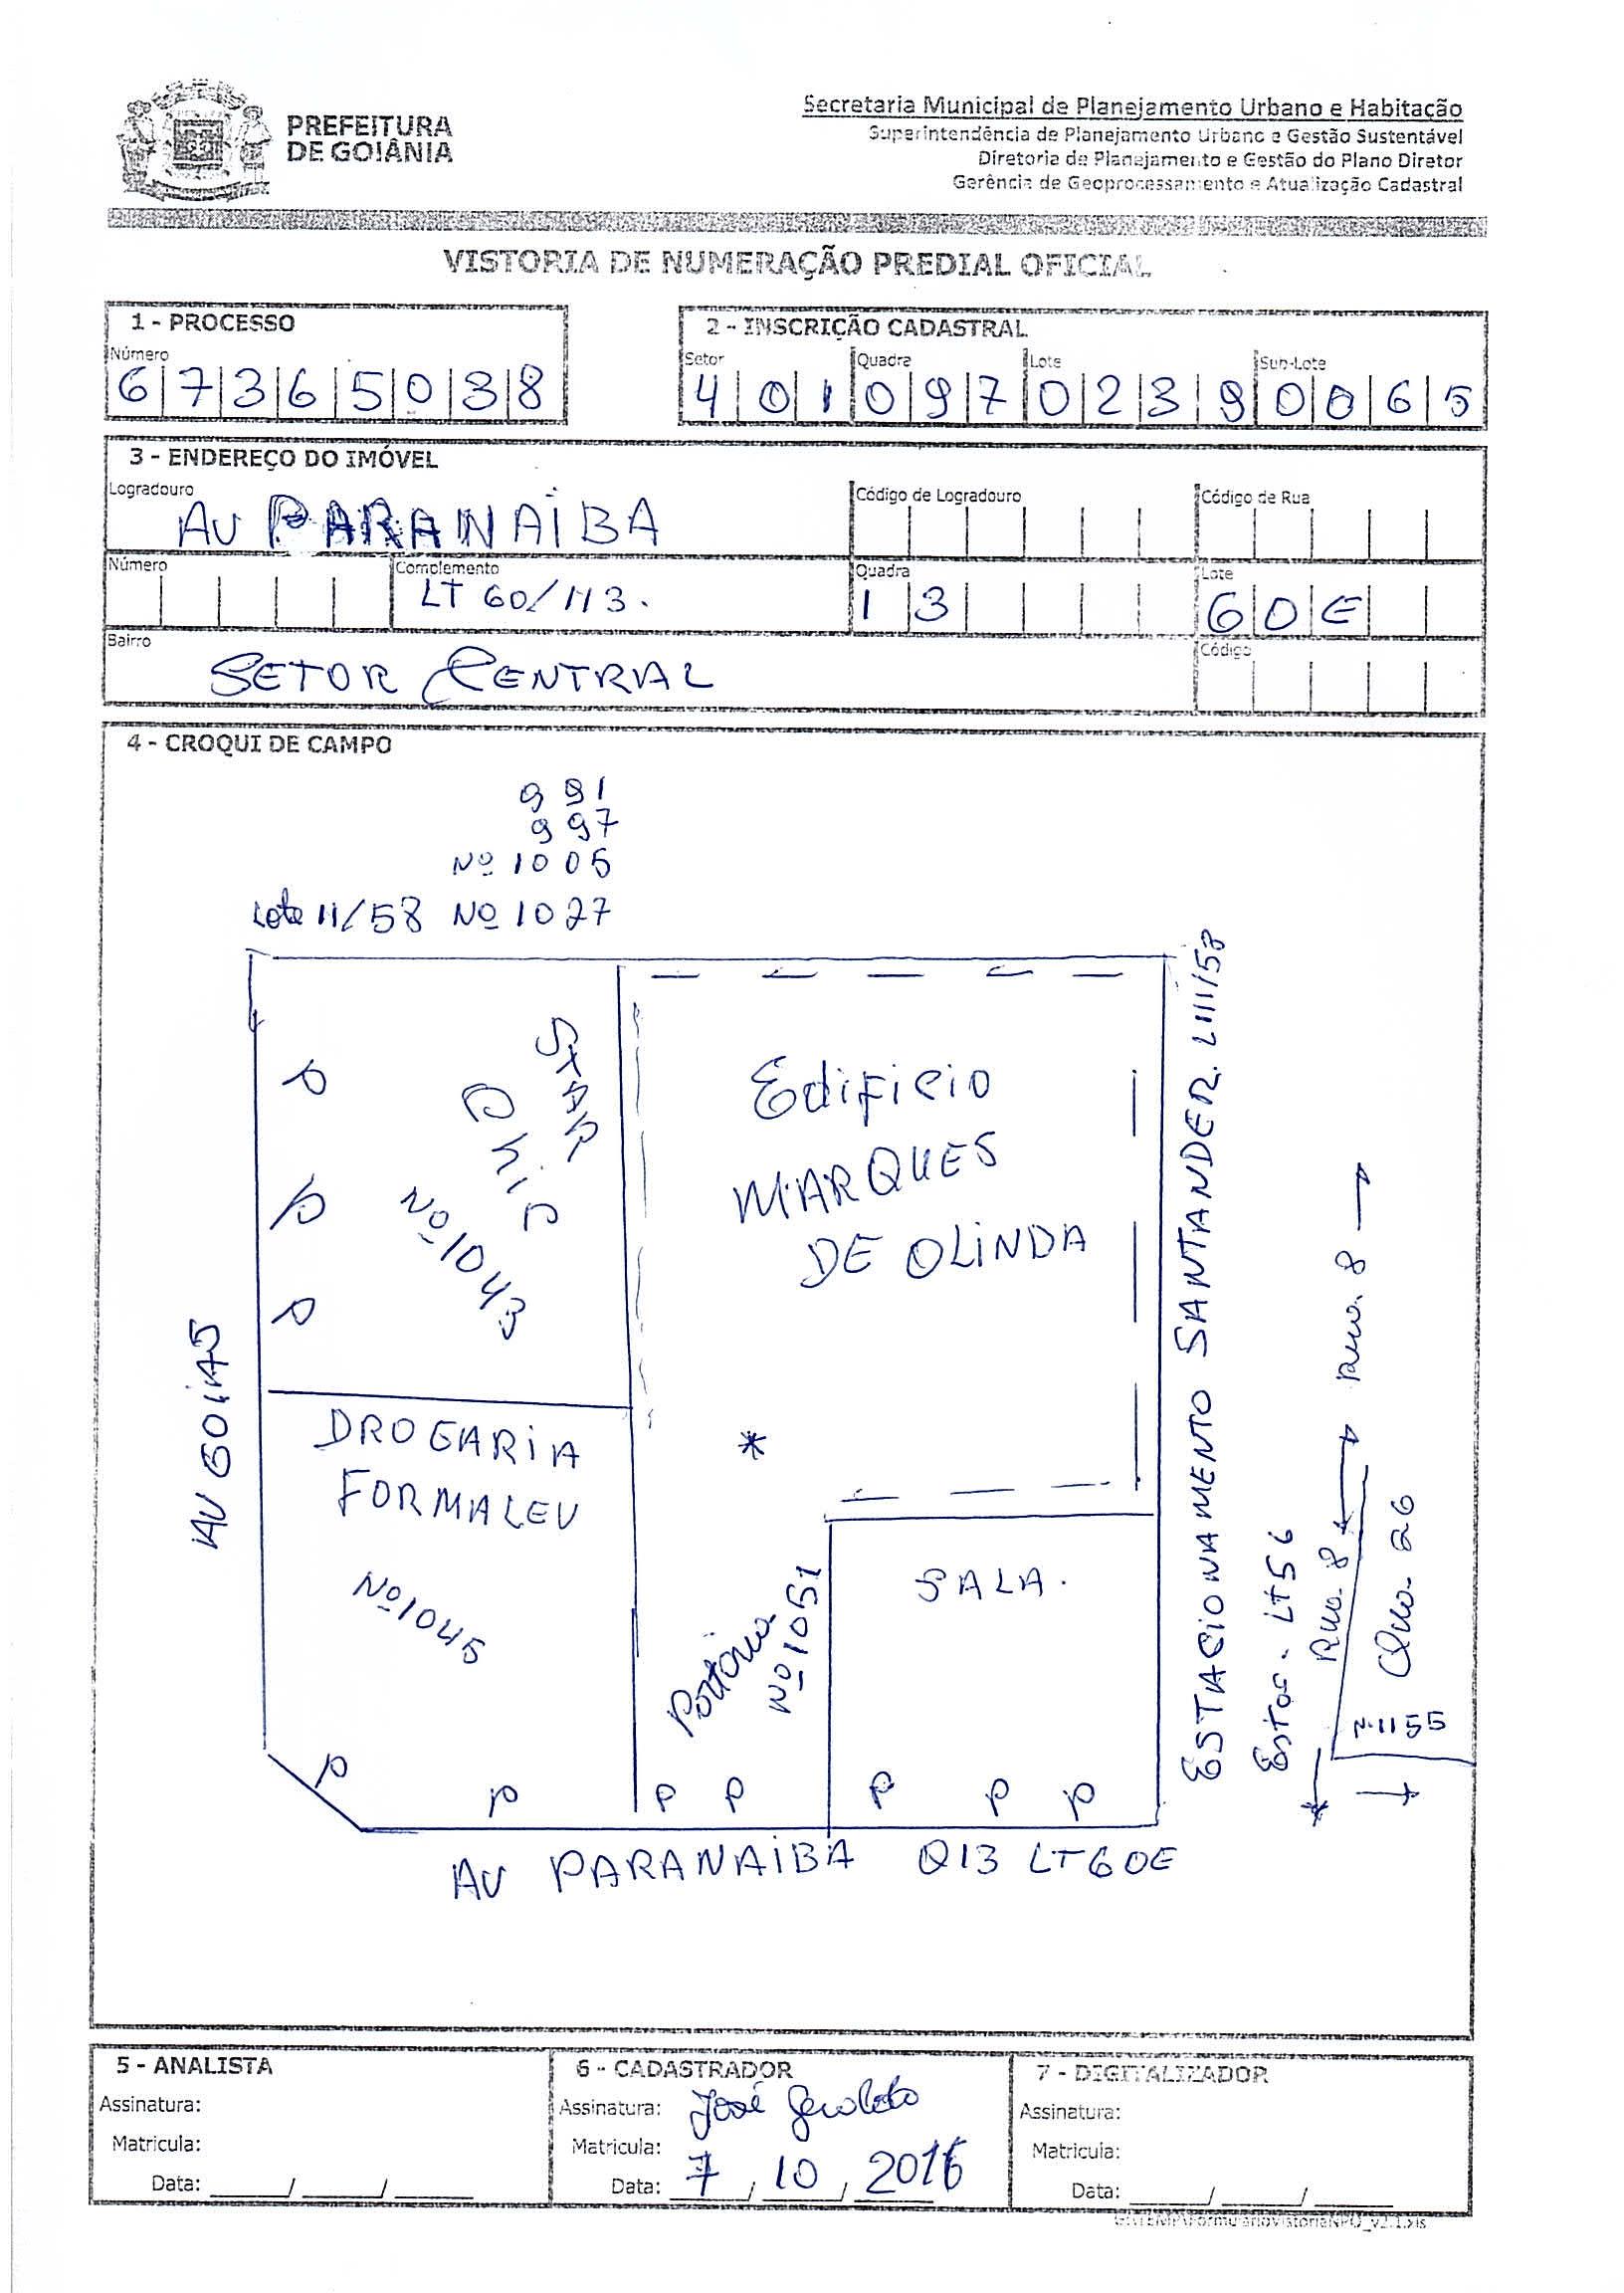 PREFEITURA
DE GOIÂNIA
Secretaria Municipal de Planejamento Urbano e Habitação
Superintendência de Planejamento Urbano e Gestão Sustentável
Diretoria de Planejamento e Gestão do Plano Diretor
Gerência de Geoprocessamento e Atualização Cadastral
VISTORIA DE NUMERAÇÃO PREDIAL OFICIAL
1 - PROCESSO
Número
6 7 3 6 5 0 3 8
2 - INSCRIÇÃO CADASTRAL
Setor Quadra Lote Sub-Lote
4 0 1 0 9 7 0 2 3 9 0 0 6 5
3 - ENDEREÇO DO IMÓVEL
Logradouro
AV PARANAIBA
Código de Logradouro
Código de Rua
Número
Complemento
LT 60/113.
Quadra
1 3
Lote
6 0 E
Bairro
SETOR CENTRAL
Código
4 - CROQUI DE CAMPO
991
997
Nº 1005
Lote 11/58 Nº 1027
STAR
Chip
Nº 1043
P
P
P
Edificio
MARQUES
DE OLINDA
AV GOIAS
DROGARIA
FORMALEV
Nº 1045
*
Portaria
Nº 1051
SALA.
P P P P P P P
ESTACIONAMENTO SANTANDER. L111/58
Estas. LT56
Rua. 8
Rua. 8
Qua. 26
Nº 1155
AV PARANAIBA Q13 LT60E
5 - ANALISTA
Assinatura:
Matricula:
Data: / /
6 - CADASTRADOR
Assinatura: José
Matricula:
Data: 7 / 10 / 2016
7 - DIGITALIZADOR
Assinatura:
Matricula:
Data: / /